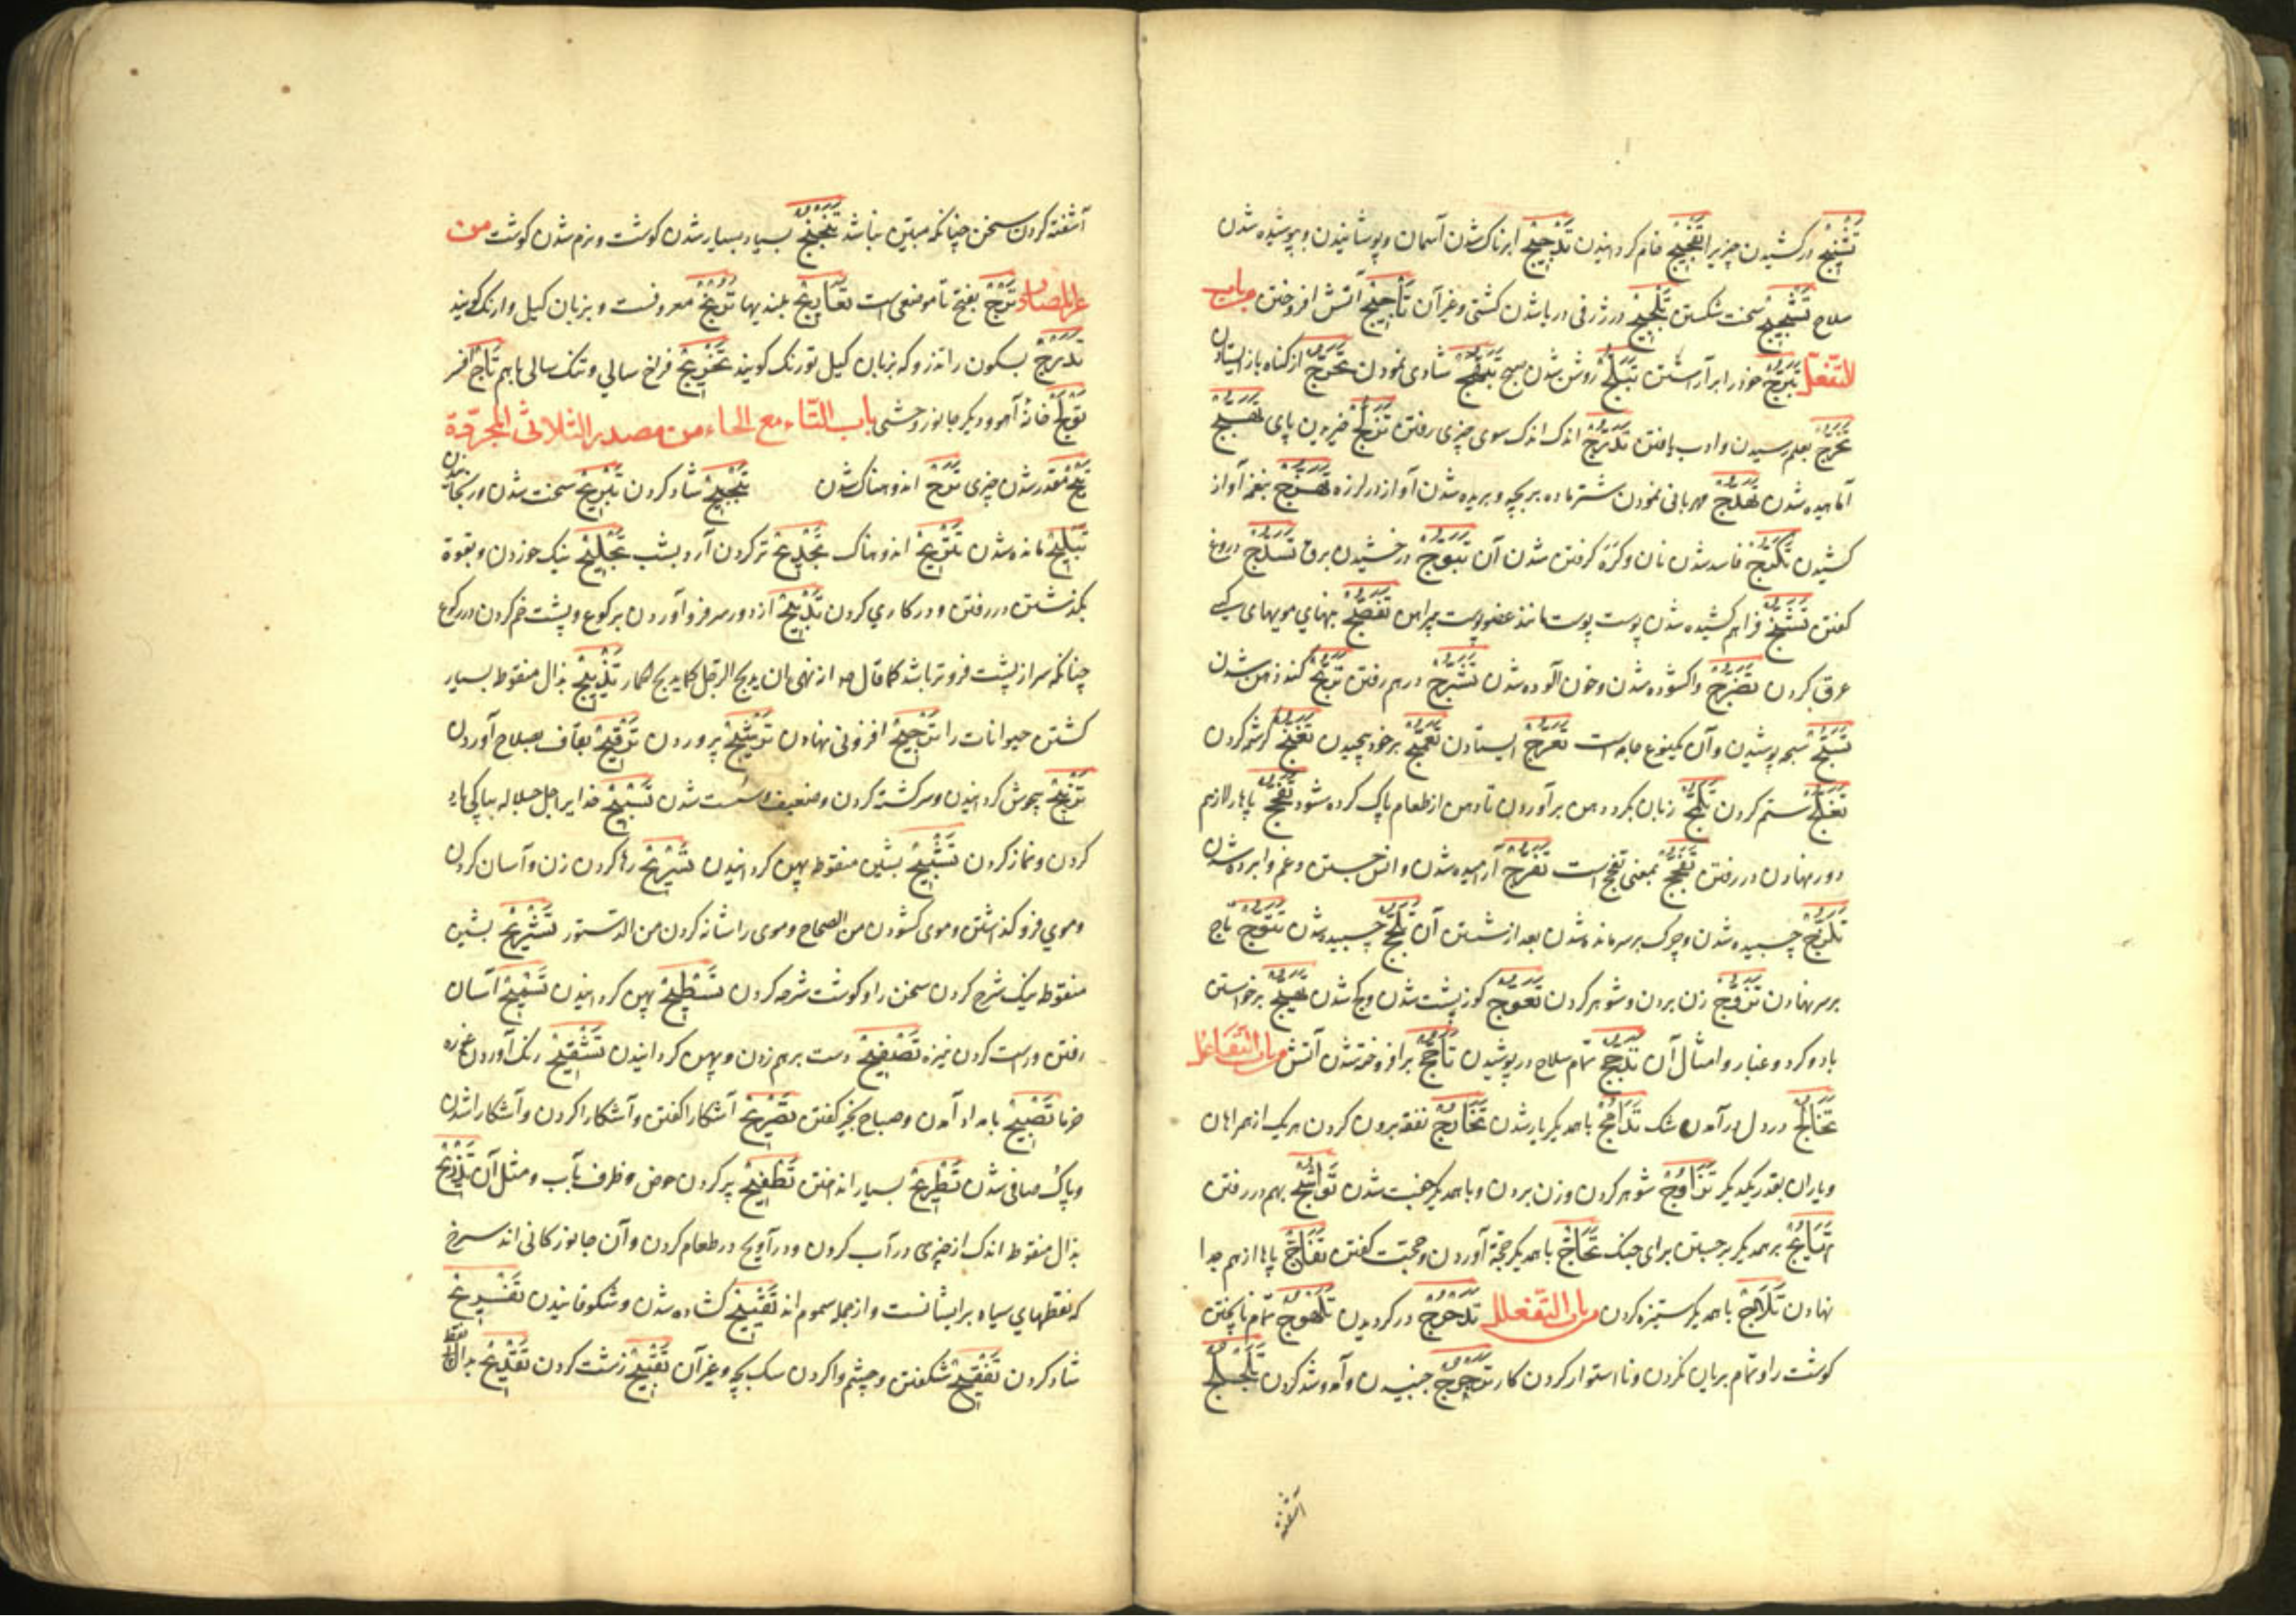 تشنیج درکشیدن چیزیرا تفجیج خام کردانیدن تدجیج ابرناک شدن آسمان وپوشانیدن وپوشیده شدن
سلاح تشجیج سخت شکستن تلجیج درژرفی دریا شدن کشتی وغیرآن تأجیج آتش افروختن وباب
التفعل تبرج خودرا برآراستن تبلج روشن شدن صبح تبهج شادی نمودن تحرج ازکناه بازایستادن
تخرج بعلم رسیدن وادب یافتن تدرج اندک اندک سوی چیزی رفتن تزلج خیزیدن پای تهبج
آماهیده شدن مهربانی نمودن شترماده بربچه وبریده شدن آواز درلرزه تهزج بنغم آواز
کشیدن تکرج فاسد شدن نان وکره کرفتن شدن آن تبوج درخشیدن برق تسلج دروغ
کفتن تشنج فراهم کشیده شدن پوست پوست مانند عضو پوست پیراهن تفصج بنهای مویهای کسی
عرق کردن تضرج واکشوده شدن وخون آلوده شدن تشرج درهم رفتن کنده ذهن شدن
تسبج سبجه پوشیدن وآن یکنوع جامه است تعرج ایستادن تعمج برخود پیچیدن تغنج کرشمه کردن
ستم کردن تلمج زبان بکرد دهن برآوردن تادهن ازطعام پاک کرده شود تفحج پاها را ازهم
دور نهادن دررفتن تفجج بمعنی تفحج است تفرج آرمیده شدن وانس جستن وغم وابرده شدن
تلزج چسبیده شدن وچرک برسرمانده شدن بعد ازشستن آن تلجج چسبیده شدن تتوج تاج
برسر نهادن تزوج زن بردن وشوهرکردن تعوج کوزپشت شدن وکج شدن تهیج برخواستن
باد وکرد وغبار وامثال آن تدجج تمام سلاح درپوشیدن تأجج برافروخته شدن آتش وباب التفاعل
تخالج دردل درآمدن شک تدامج باهمدیکریارشدن تخارج نفقه بیرون کردن هریک ازهمراهان
ویاران بقدر یکدیکر تزاوج شوهرکردن وزن بردن وباهمدیکر جفت شدن تواشج بهم دررفتن
تهایج برهمدیکر برجستن برای جنک تحاج باهمدیکرحجة آوردن وحجت کفتن تفاج پاها ازهم جدا
نهادن تلاج باهمدیکرستیزه کردن وباب التفعلل تدحرج درکردیدن تلهوج تمام ناپختن
کوشت را وتمام بریان نکردن ونااستوارکردن کار ترجرج جنبیدن وآمدوشد کردن تلجلج
آشفته
آشفته کردن سخن چنانکه مبین نباشد تبجبج بسیاربسیارشدن کوشت ونرم شدن کوشت من
غیرالمصادر ترج بفتح تا موضعی است تعاریج بلندیها ترنج معروفست وبزبان کیل وارنک کویند
تدرج بسکون را تذرو که بزبان کیل تورنک کویند تخریج فراخ سالی وتنک سالی باهم تاج افسر
تولج خانه آهو ودیکر جانور وحشی باب التاء مع الحاء من مصدر الثلاثی المجردة
تیح مقدر شدن چیزی ترح اندوهناک شدن تبجیح شاد کردن تبریح سخت شدن ورنجانیدن
تبلیح مانده شدن تتریح اندوهناک تجدیح ترکردن آرد بشیب تجلیح نیک خوردن وبقوة
بکذشتن دررفتن ودرکاری کردن تدبیح ازدور سرفروآوردن برکوع وپشت خم کردن دررکوع
چنانکه سراز پشت فروترباشد کما قال ص ازنهی ان یدبح الرجل کما یدبح الحمار تذبیح بذال منقوط بسیار
کشتن حیوانات را ترجیح افزونی نهادن ترشیح پروردن ترقیح بقاف بصلاح آوردن
ترنیح بیهوش کردانیدن وسرکشته کردن وضعیف وسست شدن تسبیح خدایرا جل جلاله بپاکی یاد
کردن ونماز کردن تشبیح بشین منقوط پهن کردانیدن تسریح رها کردن زن وآسان کردن
وموی فروکذاشتن وموی کشودن من الصحاح وموی را شانه کردن من الدستور تشریح بشین
منقوط نیک شرح کردن سخن را وکوشت شرحه کردن تسطیح پهن کردانیدن تسمیح آسان
رفتن وراست کردن نیزه تصفیح دست برهم زدن وپهن کردانیدن تشقیح رنک آوردن غوره
خرما تصبیح بامداد آمدن وصباح بخیر کفتن تصریح آشکارا کفتن وآشکارا کردن وآشکارا شدن
وپاک وصافی شدن تطریح بسیار انداختن تطفیح پرکردن حوض وظرف بآب ومثل آن تذریح
بذال منقوط اندک ازچیزی درآب کردن ودرآویح درطعام کردن وآن جانورکانی اند سرخ
که نقطهای سیاه برایشانست وازجمله سموم اند تفتیح کشاده شدن وشکوفانیدن تفریح
شادکردن تفقیح شکفتن وچشم واکردن سک بچه وغیرآن تقبیح زشت کردن تقدیح بدال